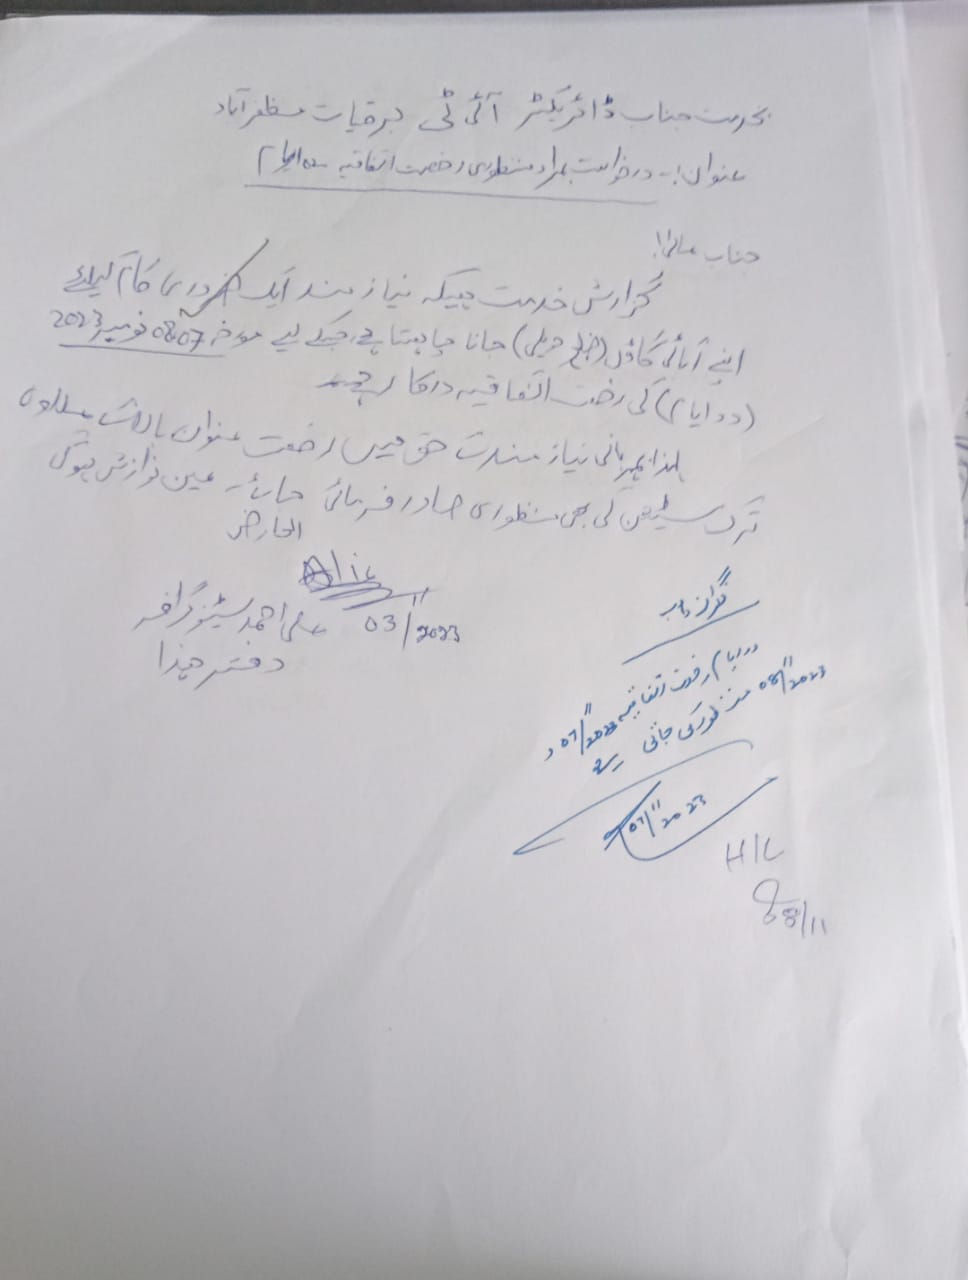 بخدمت جناب ڈائریکٹر آئی ٹی برقیات مظفرآباد
عنوان:- درخواست بمراد منظوری رخصت اتفاقیہ ایام
جناب عالی!
گزارش خدمت ہیکہ نیازمند ایک ضروری کام کیلئے
اپنے آبائی گاؤں (ضلع حویلی) جانا چاہتا ہے جسکے لیے مورخہ 07،08 نومبر 2023
(دو ایام) کی رخصت اتفاقیہ درکار ہے
لہذا بمہربانی نیازمند کے حق میں رخصت عنوان بالا کے مطلوبہ
ترک سٹیشن کی بھی منظوری صادر فرمائی جائے۔ عین نوازش ہوگی
العارض
Alic
03/11/2023
علی احمد سٹینوگرافر
دفتر ہذا
دو ایام رخصت اتفاقیہ 07/11/2023 و
08/11/2023 منظور کی جاتی ہے
07/11/2023
H/C
8/11